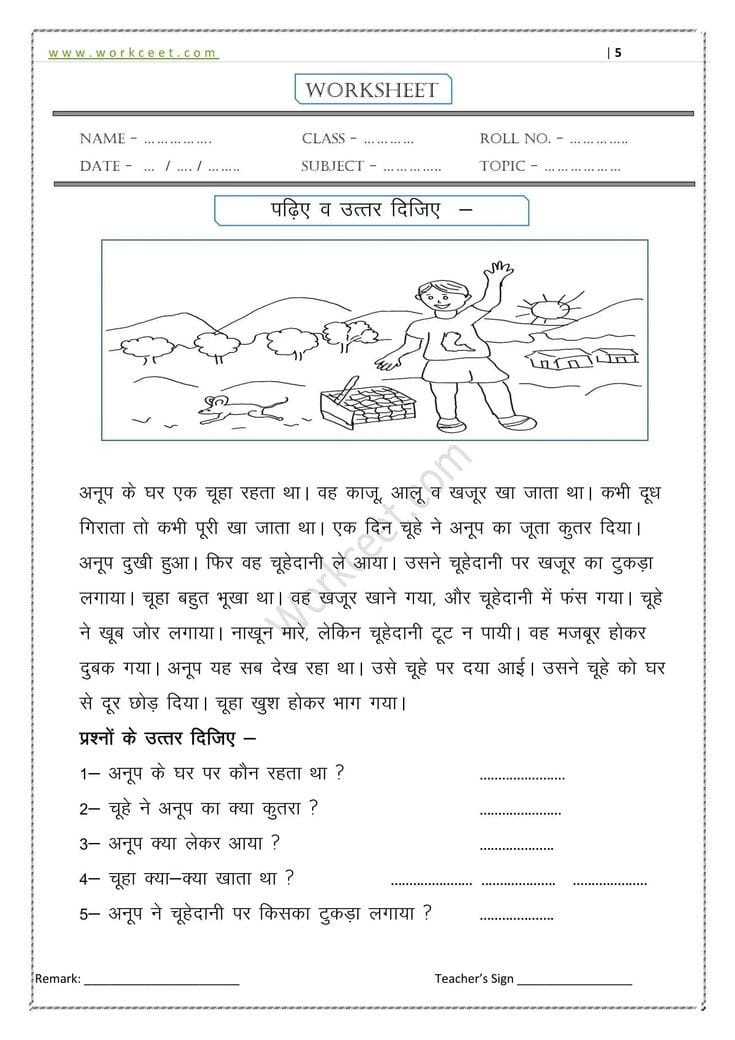 www.workceet.com | 5
WORKSHEET
NAME – …………… CLASS – ………… ROLL NO. – …………..
DATE – … / …. / …….. SUBJECT – ………….. TOPIC – ………………
पढ़िए व उत्तर दिजिए –
अनूप के घर एक चूहा रहता था। वह काजू, आलू व खजूर खा जाता था। कभी दूध
गिराता तो कभी पूरी खा जाता था। एक दिन चूहे ने अनूप का जूता कुतर दिया।
अनूप दुखी हुआ। फिर वह चूहेदानी ले आया। उसने चूहेदानी पर खजूर का टुकड़ा
लगाया। चूहा बहुत भूखा था। वह खजूर खाने गया, और चूहेदानी में फंस गया। चूहे
ने खूब जोर लगाया। नाखून मारे, लेकिन चूहेदानी टूट न पायी। वह मजबूर होकर
दुबक गया। अनूप यह सब देख रहा था। उसे चूहे पर दया आई। उसने चूहे को घर
से दूर छोड़ दिया। चूहा खुश होकर भाग गया।
Workceet.com
प्रश्नों के उत्तर दिजिए –
1– अनूप के घर पर कौन रहता था ? …………………..
2– चूहे ने अनूप का क्या कुतरा ? ………………….
3– अनूप क्या लेकर आया ? ………………..
4– चूहा क्या–क्या खाता था ? …………………. ……………….. ………………..
5– अनूप ने चूहेदानी पर किसका टुकड़ा लगाया ? ………………..
Remark: ______________________ Teacher's Sign ________________